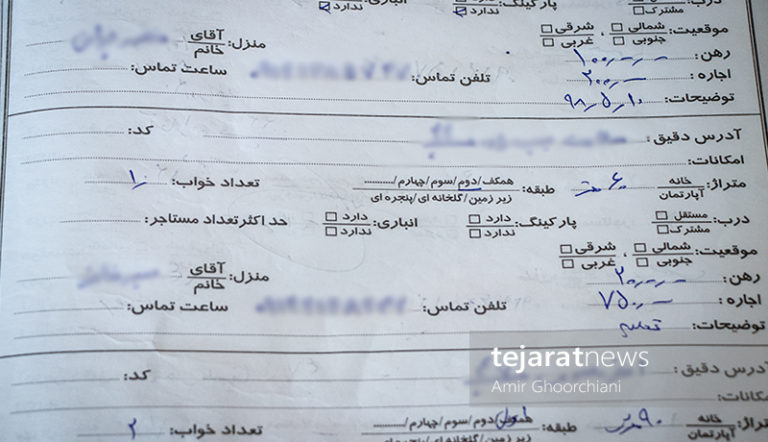 درب: مشترک پارکینگ: ندارد انباری: ندارد
موقعیت: شمالی جنوبی ، شرقی غربی منزل: آقای خانم
رهن:
اجاره: تلفن تماس: ساعت تماس:
توضیحات: ۹۸٫۵٫۱۰
آدرس دقیق: کد:
امکانات:
متراژ: خانه آپارتمان ۶۰ متر طبقه: همکف/دوم/سوم/چهارم/......... زیر زمین/گلخانه ای/پنجره ای تعداد خواب: ۱
درب: مستقل مشترک پارکینگ: دارد ندارد انباری: دارد ندارد حداکثر تعداد مستاجر:
موقعیت: شمالی جنوبی ، شرقی غربی منزل: آقای خانم
رهن:
اجاره: تلفن تماس: ساعت تماس:
توضیحات: تخلیه
آدرس دقیق: کد:
امکانات:
متراژ: خانه آپارتمان ۹۰ متر طبقه: همکف/دوم/سوم/چهارم/......... زیر زمین/گلخانه ای/پنجره ای تعداد خواب: ۲
tejaratnews
Amir Ghoorchiani